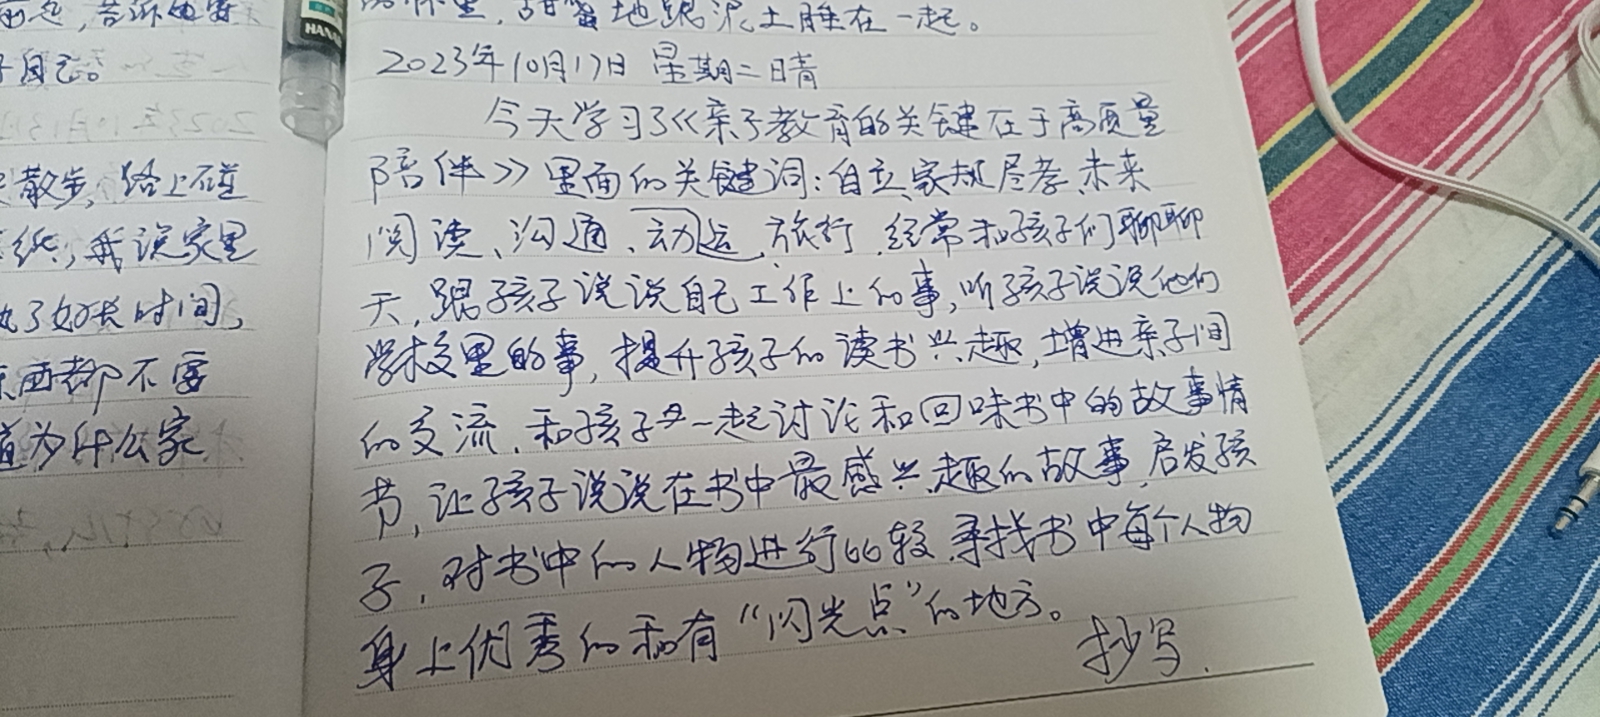 散步,路上碰
我说家里
了好长时间,
西都不要
为什么家
HANA
地跟泥土睡在一起。
2023年10月17日 星期二晴
今天学习了《亲子教育的关键在于高质量
陪伴》里面的关键词:自立、家规、尽孝、未来
阅读、沟通、动运、旅行,经常和孩子们聊聊
天,跟孩子说说自己工作上的事,听孩子说说他们
学校里的事,提升孩子的读书兴趣,增进亲子间
的交流,和孩子一起讨论和回味书中的故事情
节,让孩子说说在书中最感兴趣的故事,启发孩
子,对书中的人物进行比较,寻找书中每个人物
身上优秀的和有“闪光点”的地方。
抄写.